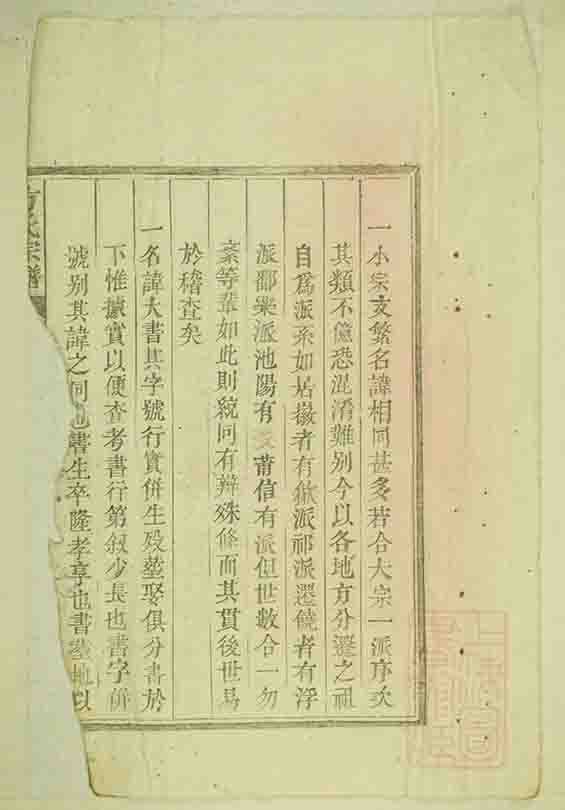 一本宗支繁名諱相同甚多若合大宗一派序次
其類不億恐混淆難别今以各地方分遷之祖
自爲派系如居徽者有歙派祁派遷饒者有浮
派鄱樂派池陽有莆信有派但世數合一勿
紊等輩如此則統同有辨殊條而其貫後世易
於稽查矣
一名諱大書其字號行實併生殁塟娶俱分書於
下惟據實以便查考書行第叙少長也書字併
號别其諱之同也書生卒隆孝享也書塟地以
方氏宗譜